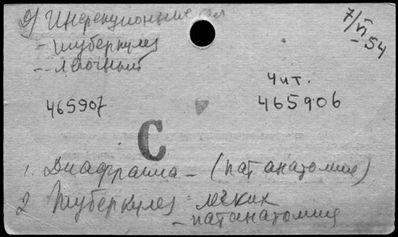 2) Инфекционные
7/VI-54
- туберкулез
- легочный
Чит.
465907
465906
C
1. Диафрагма - (пат анатомия)
2 Туберкулез легких
- патанатомия